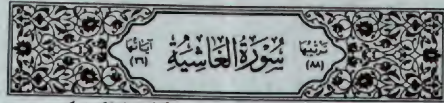 ترتيبها
(٨٨)
سُورَةُ الْغَاشِيَةِ
آياتها
(٢٦)